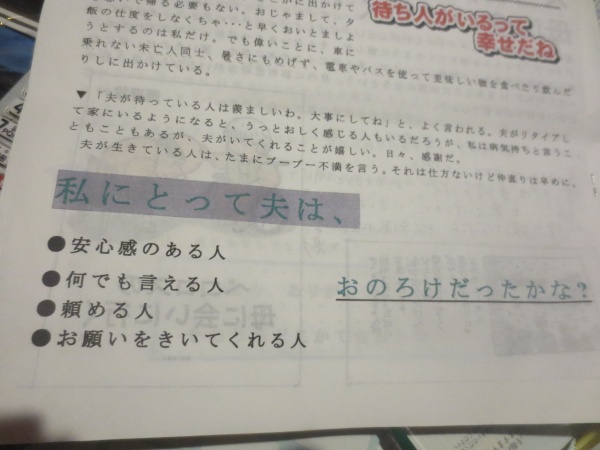 待ち人がいるって
幸せだね
で帰る必要もない。おじゃまして、夕
飯の仕度をしなくちゃ・・・と早くおいとましよ
うとするのは私だけ。でも偉いことに、車に
乗れない未亡人同士、暑さにもめげず、電車やバスを使って美味しい物を食べたり飲んだ
りしに出かけている。
▼「夫が待っている人は羨ましいわ。大事にしてね」と、よく言われる。夫がリタイアし
て家にいるようになると、うっとおしく感じる人もいるだろうが、私は病気持ちと言うこ
ともこともあるが、夫がいてくれることが嬉しい。日々、感謝だ。
夫が生きている人は、たまにブーブー不満を言う。それは仕方ないけど仲直りは早めに、
私にとって夫は、
●安心感のある人
●何でも言える人
●頼める人
●お願いをきいてくれる人
おのろけだったかな？